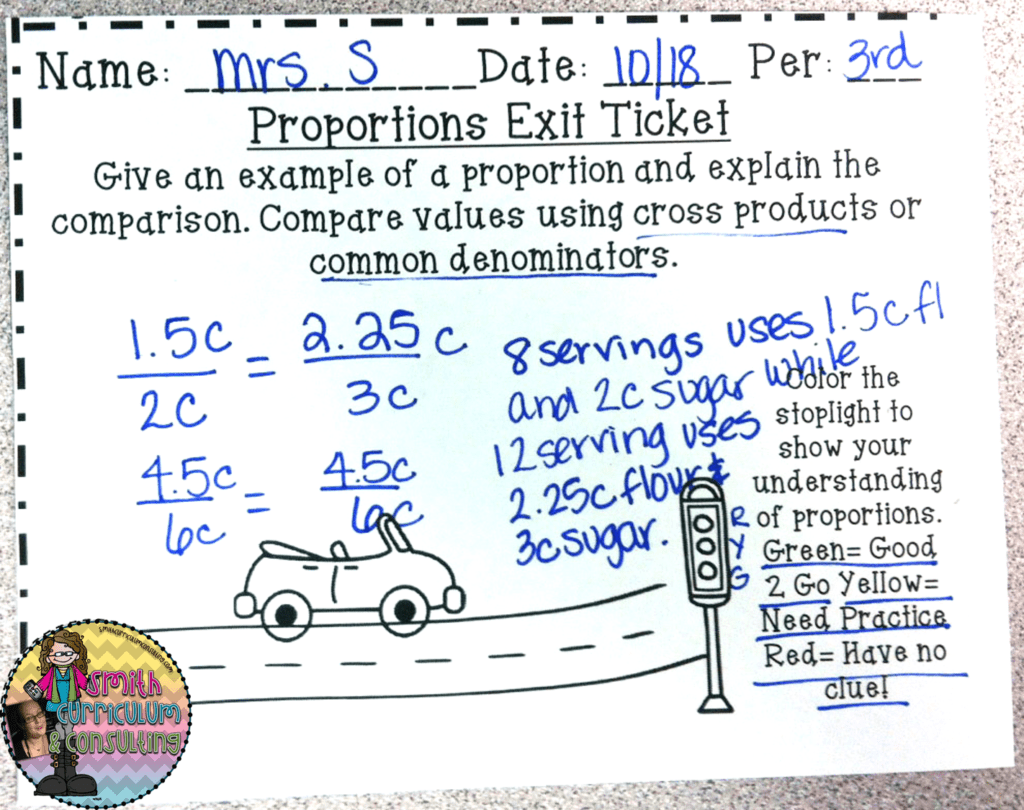 Name: Mrs. S Date: 10/18 Per: 3rd
Proportions Exit Ticket
Give an example of a proportion and explain the
comparison. Compare values using cross products or
common denominators.
1.5c = 2.25 c
2c 3c
4.5c = 4.5c
6c 6c
8 servings uses 1.5c fl
and 2c sugar while
12 serving uses
2.25c flour &
3c sugar.
Color the
stoplight to
show your
understanding
of proportions.
Green= Good
2 Go Yellow=
Need Practice
Red= Have no
clue!
R
Y
G
smithcurriculumconsulting.com
Smith
Curriculum
& Consulting